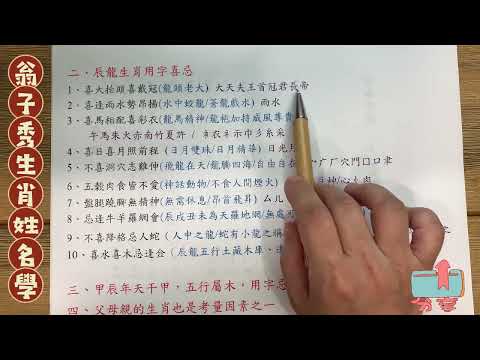 翁子秀生肖姓名學
二、辰龍生肖用字喜忌
1、喜大抬頭喜戴冠(龍頭老大) 大天夫王首冠君長帝
2、喜逢雨水勢昂揚(水中蛟龍/蒼龍戲水) 雨水
3、喜馬相配喜彩衣(龍馬精神/龍袍加持威風專貴
午馬朱火赤南竹夏許 /衤衣礻示巾彡系采
4、喜日喜月照前程 (日月雙珠/日月精華) 日光月
5、不喜洞穴志難伸(飛龍在天/龍騰四海/自由自在 宀广厂穴門囗口聿
6、五穀肉食皆不愛(神話動物/不食人間煙火)
7、盤腿蹺腳無精神(無需休息/昂首飛昇) 厶儿
8、忌逢牛羊羅網會(辰戌丑未為天羅地網/無處
9、不喜降格忌人蛇 (人中之龍/蛇有小龍之稱
10、喜水喜木忌逢合 (辰龍五行土藏木庫、逢
三、甲辰年天干甲，五行屬木，用字忌
四、父母親的生肖也是考量因素之一
分享